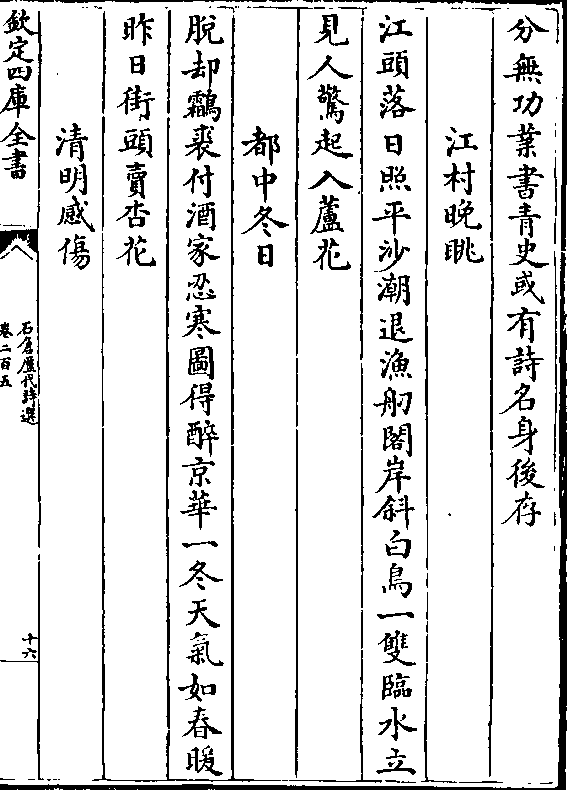 分無功業書青史或有詩名身後存
江村晚眺
江頭落日照平沙潮退漁舠閣岸斜白鳥一雙臨水立
見人驚起入蘆花
都中冬日
脫却鸘裘付酒家忍寒圖得醉京華一冬天氣如春暖
昨日街頭賣杏花
清明感傷
欽定四庫全書
石倉歷代詩選
卷二百五
十六